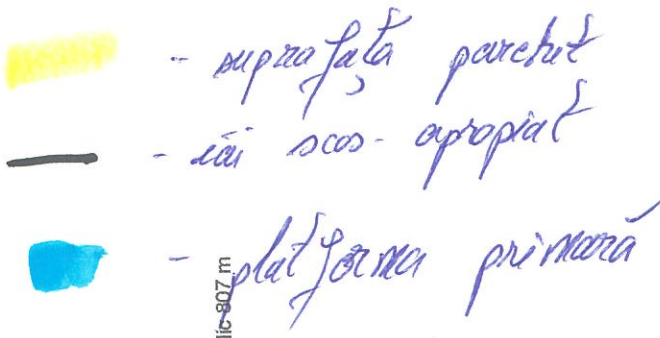 - suprafața parchet
- căi scos-apropiat
- platforma primară
lic 807 m